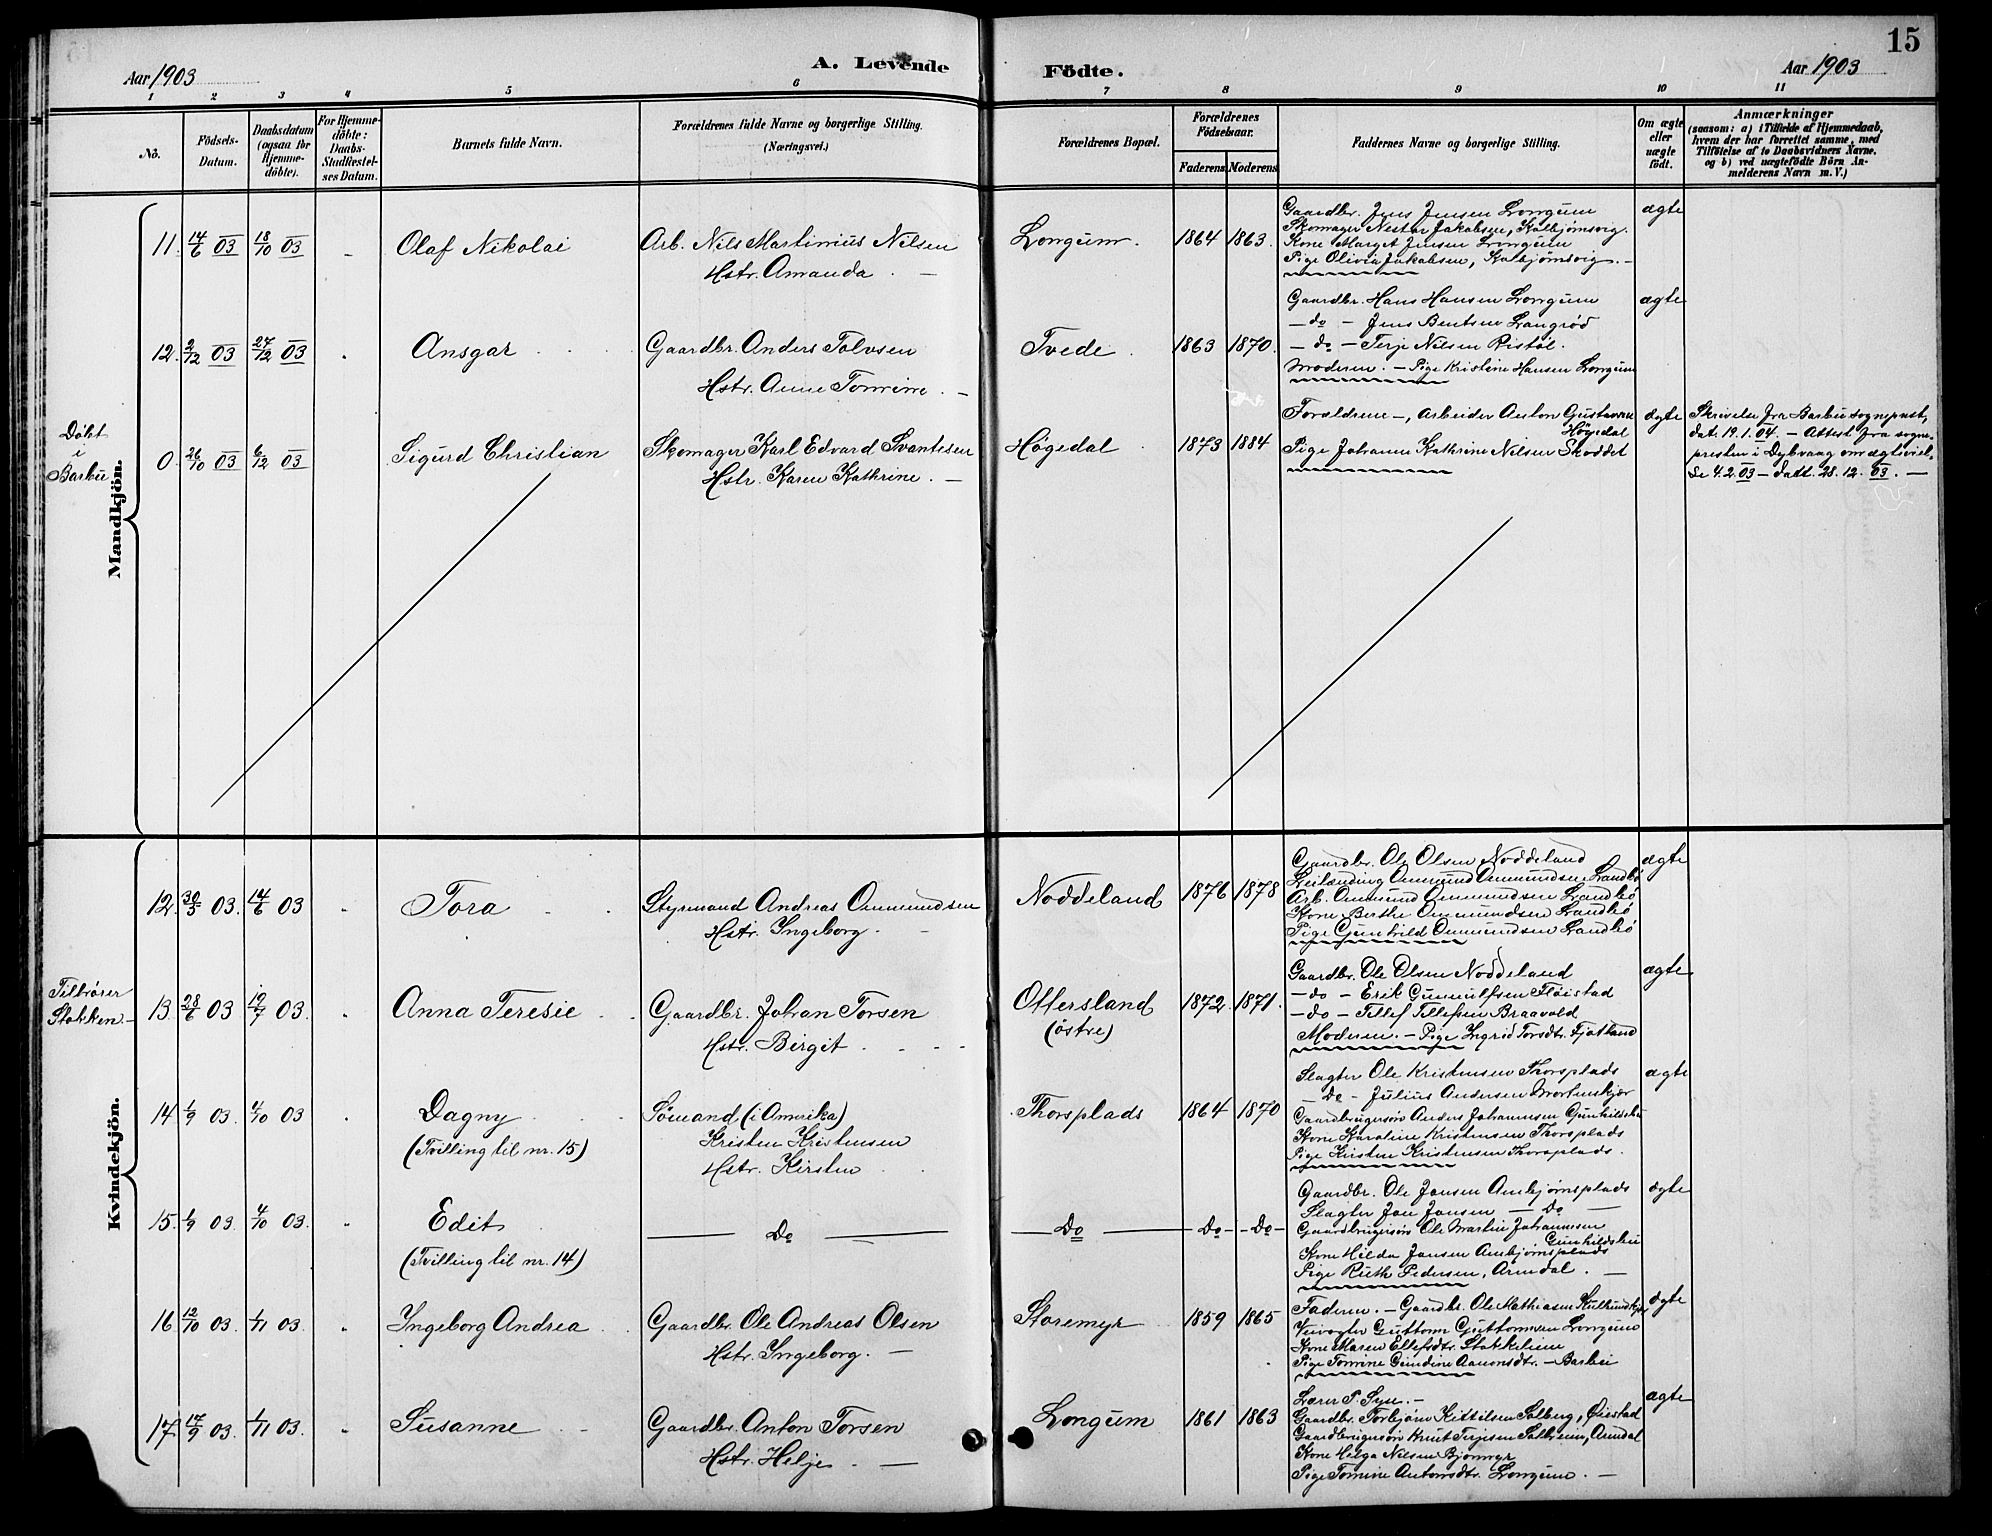 15
Aar 1903
A. Levende
Födte.
Aar 1903
1 2 3 4 5 6 7 8 9 10 11
No.
Födsels-
Datum.
Daabsdatum
(ogsaa for
Hjemme-
döbte).
For Hjemme-
döbte:
Daabs-
Stadfæstel-
ses Datum.
Barnets fulde Navn.
Forældrenes fulde Navne og borgerlige Stilling.
(Næringsvei.)
Forældrenes Bopæl.
Forældrenes
Födselsaar.
Faderens Moderens
Faddernes Navne og borgerlige Stilling.
Om ægte
eller
uægte
födt.
Anmærkninger
(saasom: a) i Tilfælde af Hjemmedaab,
hvem der har forrettet samme, med
Tilföielse af to Daabsvidners Navne,
og b) ved uægtefödte Börn An-
melderens Navn m. V.)
Mandkjön.
11. 14/6 03 18/10 03 Olaf Nikolai
Arb. Nils Martinius Nilsen
Hstr. Amanda. —
Longum. 1864 1863.
Gaardbr. Jens Jensen Longum
Skomager Nestar Jakobsen, Kolbjørnsvig.
Kone Marget Jensen Longum
Pige Olivia Jakobsen, Kolbjørnsvig. —
ægte
12. 2/12 03 27/12 03 Ansgar
Gaardbr. Anders Tolvsen
Hstr. Anne Tomine —
Tvede 1863 1870.
Gaardbr. Hans Hansen Longum
— do — Jens Bentsen Langrød
— do — Terje Nilsen Ristøl.
Moderen. — Pige Kristine Hansen Longum
ægte
Døbt
i
Barbu
0. 26/10 03 6/12 03 Sigurd Christian
Skomager Karl Edvard Svantesen
Hstr. Karen Kathrine. —
Høgedal 1873 1884
Forældrene —, Arbeider Anton Gustavsen
Høgedal
Pige Johanne Kathrine Nilsen Skoddet
ægte
Skrivelse fra Barbu sognepræst,
dat. 19.1.04. — Attest fra sogne-
presten i Dybvaag om ægteviel-
se 4.2.03 — datt. 28.12.03. —
Kvindekjön.
12. 30/3 03. 14/6 03 Tora
Styrmand Andreas Ommundsen
Hstr. Ingeborg. —
Noddeland 1876 1878
Gaardbr. Ole Olsen Noddeland
Leilænding Ommund Ommundsen Landbø
Arb. Ommund Ommundsen Landbø
Kone Berthe Ommundsen Landbø
Pige Gunhild Ommundsen Landbø
ægte
Tilhører
Stokken —
13. 28/6 03 19/7 03. Anna Teresie
Gaardbr. Johan Torsen
Hstr. Birgit.
Ottersland
(østre)
1872. 1871.
Gaardbr. Ole Olsen Noddeland
— do — Erik Gunnulfsen Fløistad
— do — Tellef Tellefsen Braavold
Moderen. — Pige Ingrid Torsdtr. Fjotland
ægte
14 1/9 03. 4/10 03 Dagny
(Tvilling til nr. 15)
Sømand (i Amerika)
Kristen Kristensen
Hstr. Kirsten
Thorsplads 1864 1870
Slagter Ole Kristensen Thorsplads
— Do — Julius Andersen Mortenskjær
Gaardbrugersøn Anders Johannesen Gunhildsbu
Kone Karoline Kristensen Thorsplads
Pige Kirsten Kristensen Thorsplads.
ægte
15. 1/9 03. 4/10 03. Edit
(Tvilling til nr. 14)
— Do —
— Do — — Do — — Do —
Gaardbr. Ole Jansen Ambjørnsplads
Slagter Jon Jansen — Do —
Gaardbrugersøn Ole Martin Johannesen
Gunhildsbu
Kone Hilda Jansen Ambjørnsplads
Pige Ruth Pedersen, Arendal. —
ægte
16 12/10 03. 1/11 03. Ingeborg Andrea
Gaardbr. Ole Andreas Olsen
Hstr. Ingeborg. —
Storemyr 1859 1865
Faderen. — Gaardbr. Ole Mathiasen
Veivogter Guttorm Guttormsen Longum
Kone Maren Ellefsdtr. Stokkelien
Pige Tomine Gundine Aanonsdtr. — Barbu
ægte
17 17/9 03. 1/11 03. Susanne
Gaardbr. Anton Torsen
Hstr. Helje. —
Longum 1861 1863
Lærer P. Syse. —
Gaardbr. Torbjørn Kittilsen Solberg, Øiestad
Gaardbrugersøn Knut Terjesen Solheim, Arendal
Kone Helga Nilsen Bjønmyr
Pige Tomine Antonsdtr. Longum. —
ægte